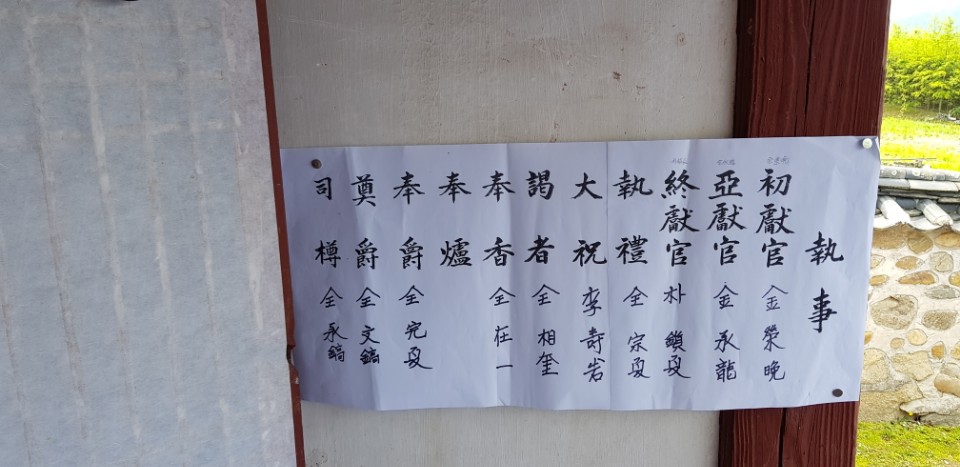 執事
初獻官 金 榮晩
亞獻官 金 永龍
終獻官 朴 鎮夏
執禮 全 宗夏
大祝 李 壽岩
謁者 全 相奎
奉香 全 在一
奉爐
奉爵 全 完夏
奠爵 全 文鎬
司樽 全 永鎬